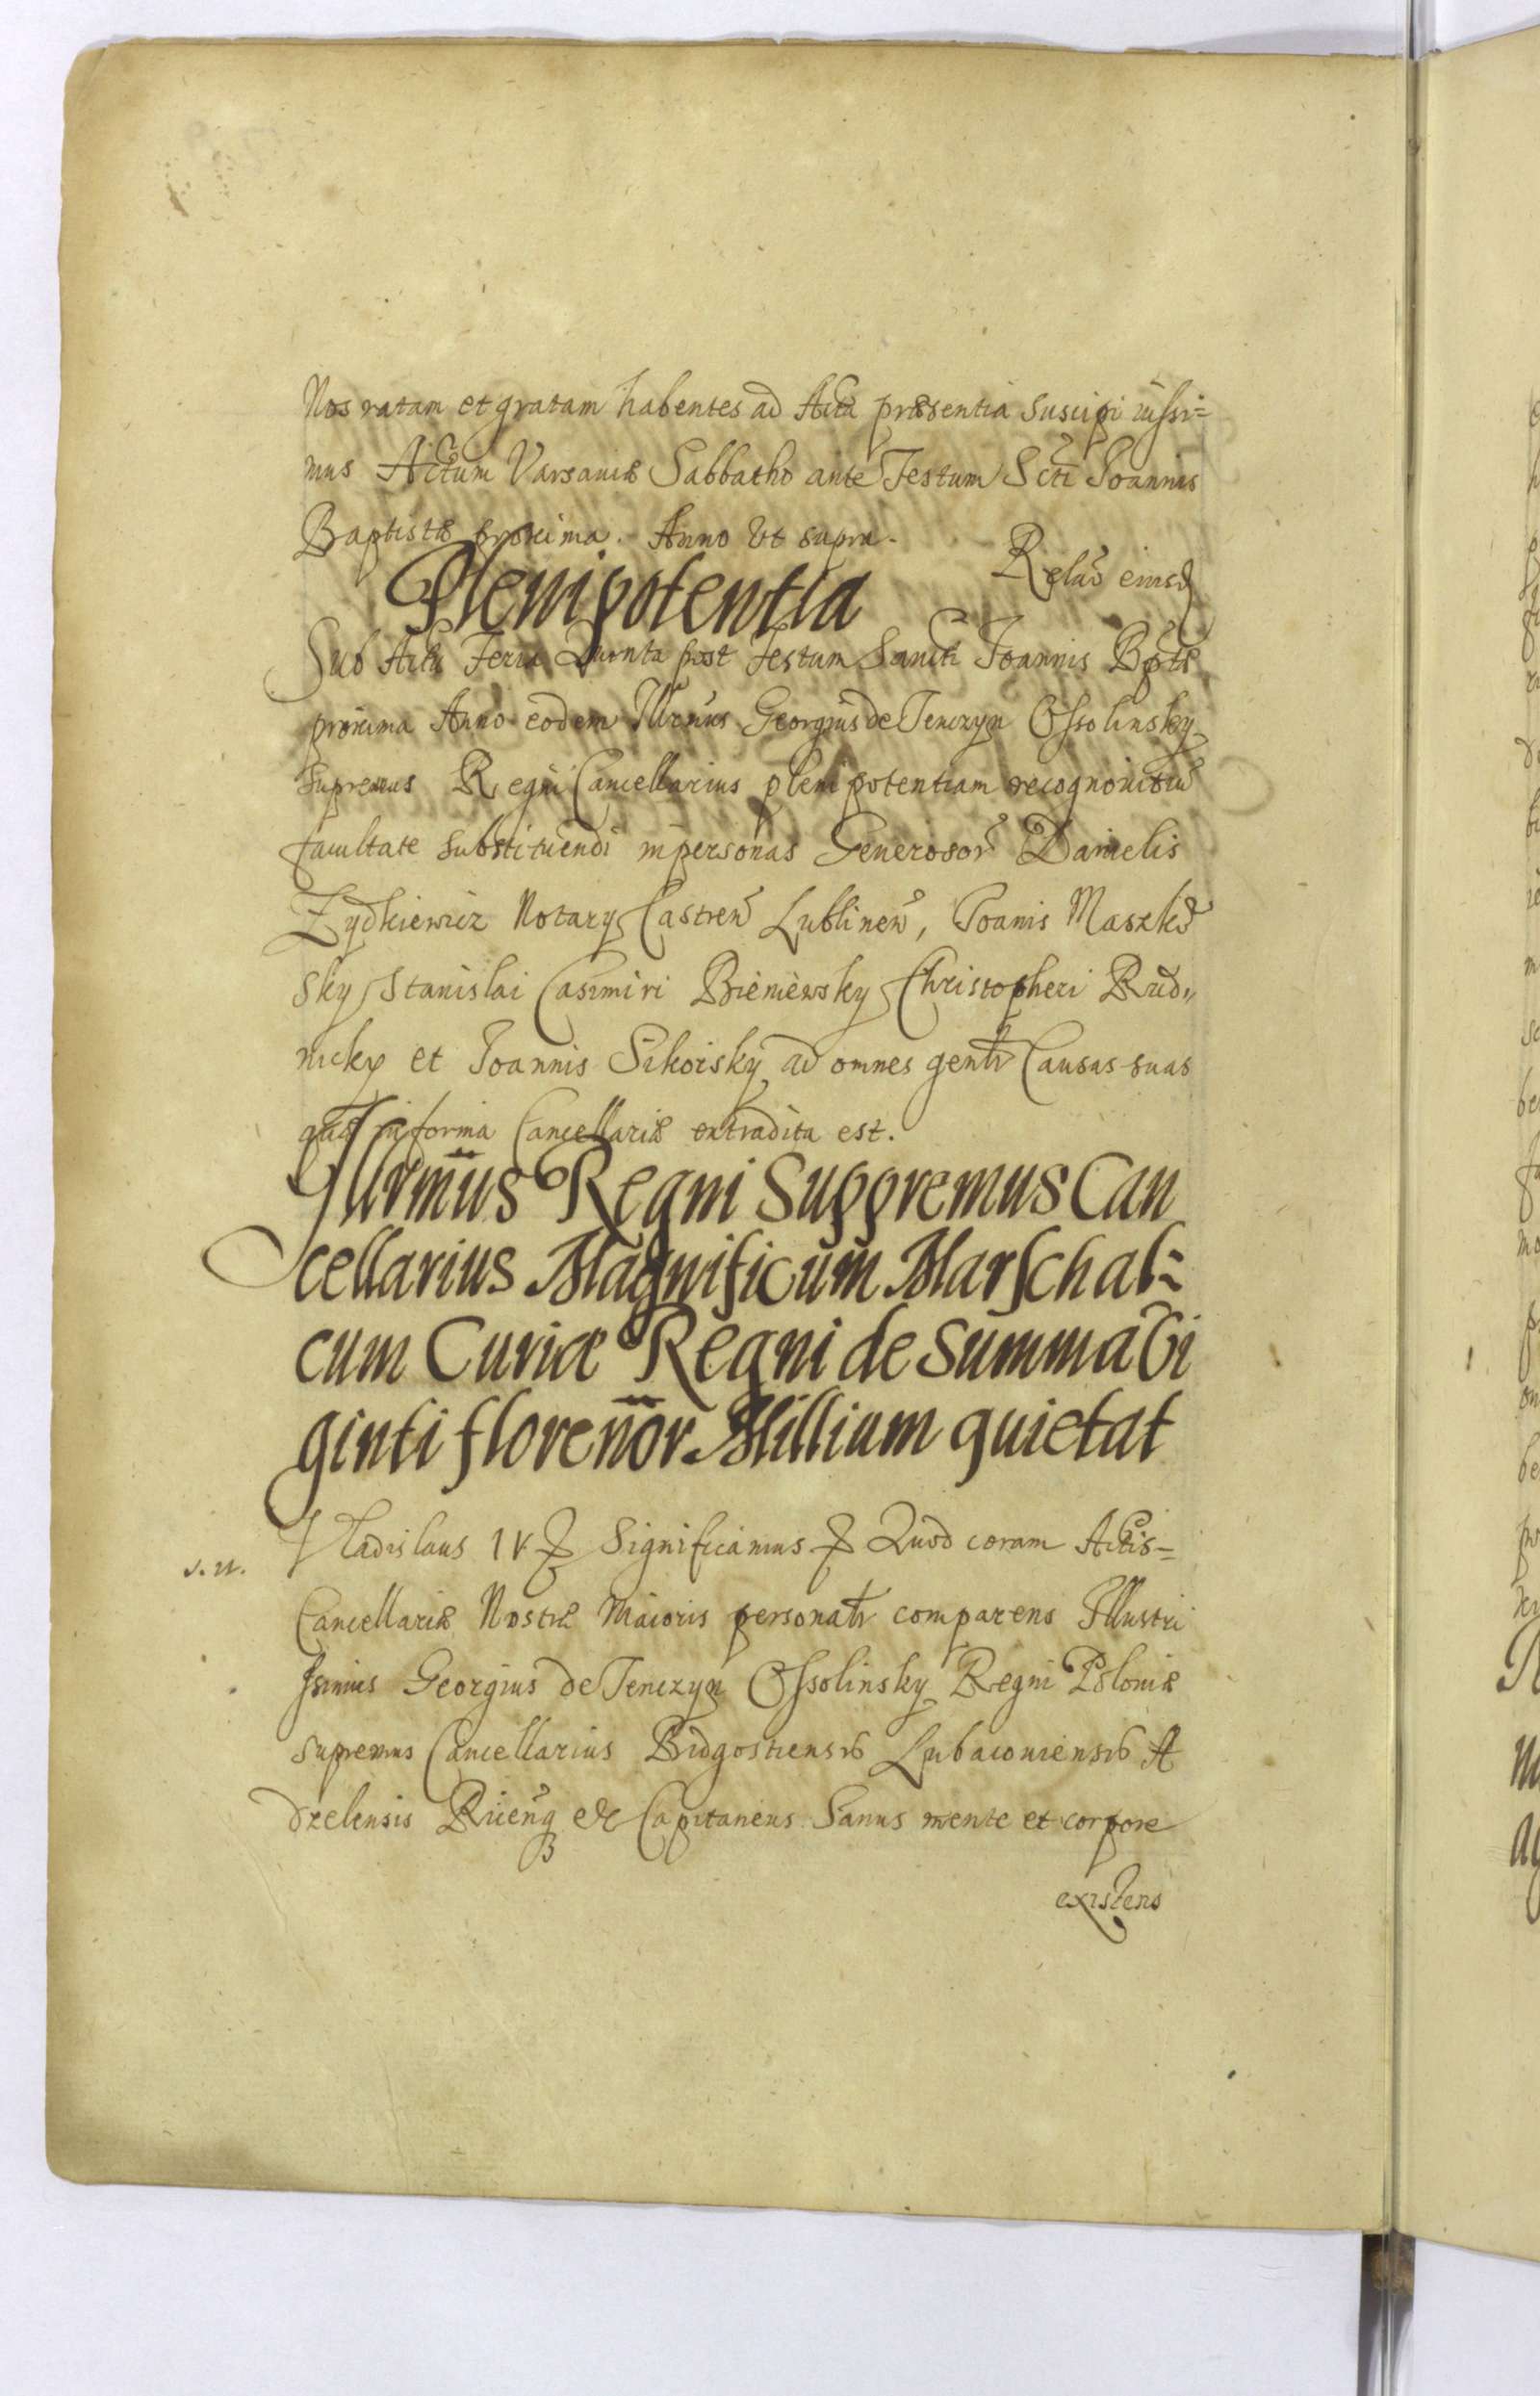 Nos ratam et gratam habentes ad Acta præsentia suscipi iussi=
mus Actum Varsaviæ Sabbatho ante Festum Scti Joannis
Baptistæ proxima. Anno Ut supra.
Relaō eiusd
Plenipotentia
Sub Actu Feria Quinta post Festum Sancti Joannis Bptæ
proxima Anno eodem Illrmus Georgius de Tenczyn Ossolinsky
Supremus Regni Cancellarius plenipotentiam recognovit cū
facultate substituendi in personas Generosor Danielis
Zydkiewicz Notarÿ Castren Lublinen, Joanis Maszko
sky Stanislai Casimiri Bieniewsky Christopheri Rud„
nicky et Joannis Sikorsky ad omnes genlr Causas suas
quæ in forma Cancellariæ extradita est.
Illrmūs Regni Suppremus Can
cellarius Magnificum Marschal=
cum Curiæ Regni de Summa Vi
ginti florenōr Millium quietat
s. n.
Vladislaus IV Significamus Quod coram Actis=
Cancellariæ Nostræ Maioris personalr comparens Illustri
ssimus Georgius de Tenczyn Ossolinsky Regni Poloniæ
supremus Cancellarius Bidgostiensis Lubaconiensis A
dzelensis Ricenq etc Capitaneus Sanus mente et corpore
existens